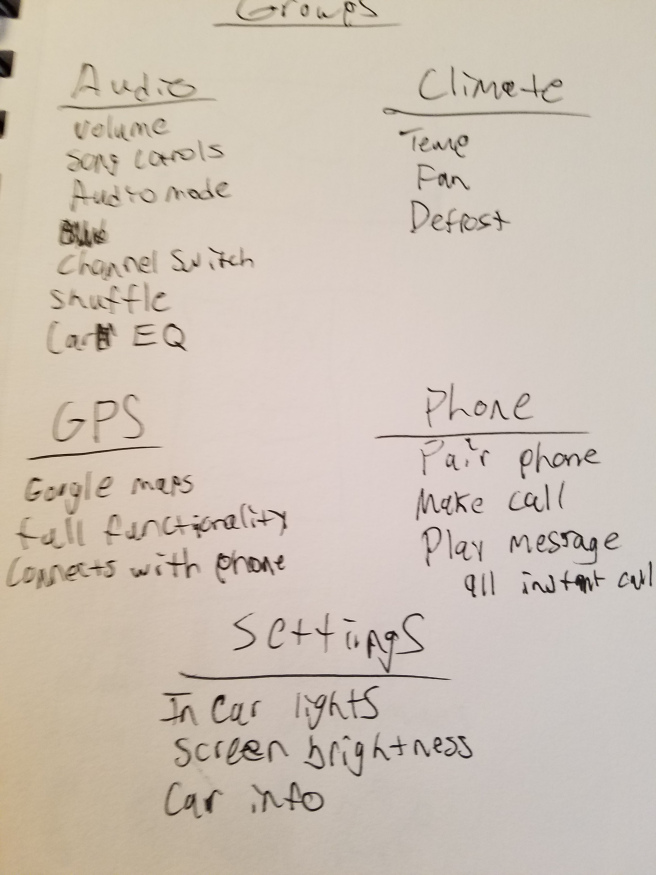 Groups
Audio
Volume
Song Cotrols
Audio mode
Channel Switch
Shuffle
Car EQ
Climate
Temp
Fan
Defrost
GPS
Google maps
full functionality
Connects with phone
Phone
Pair phone
Make call
Play message
911 instant call
Settings
In Car lights
Screen brightness
Car info